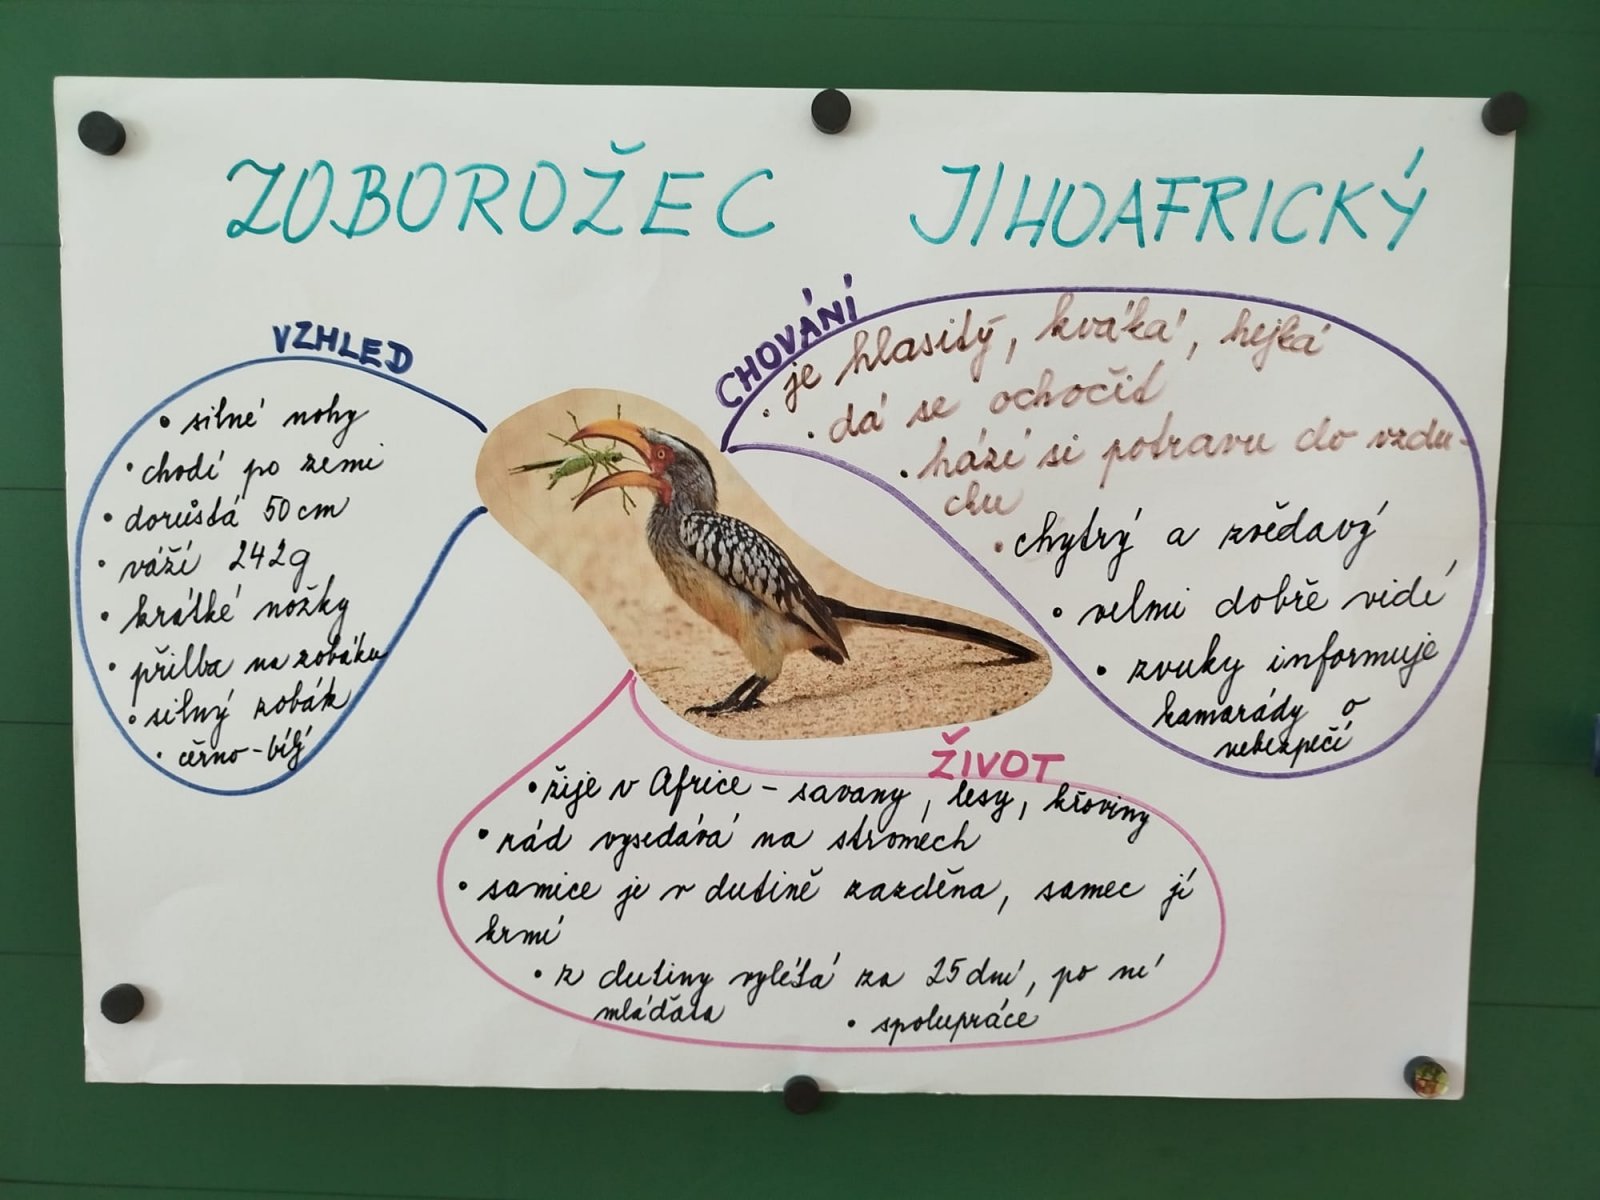 ZOBOROŽEC JIHOAFRICKÝ
VZHLED
• silné nohy
• chodí po zemi
• dorůstá 50 cm
• váží 242g
• krátké nožky
• přilba na zobáku
• silný zobák
• černo-bílý
CHOVÁNÍ
• je hlasitý, kváká, hejká
• dá se ochočit
• hází si potravu do vzdu-
chu
• chytrý a zvědavý
• velmi dobře vidí
• zvuky informuje
kamarády o
nebezpečí
ŽIVOT
• žije v Africe - savany, lesy, křoviny
• rád vysedává na stromech
• samice je v dutině zazděna, samec jí
krmí
• z dutiny vylétá za 25 dní, po ní
mláďata
• spolupráce